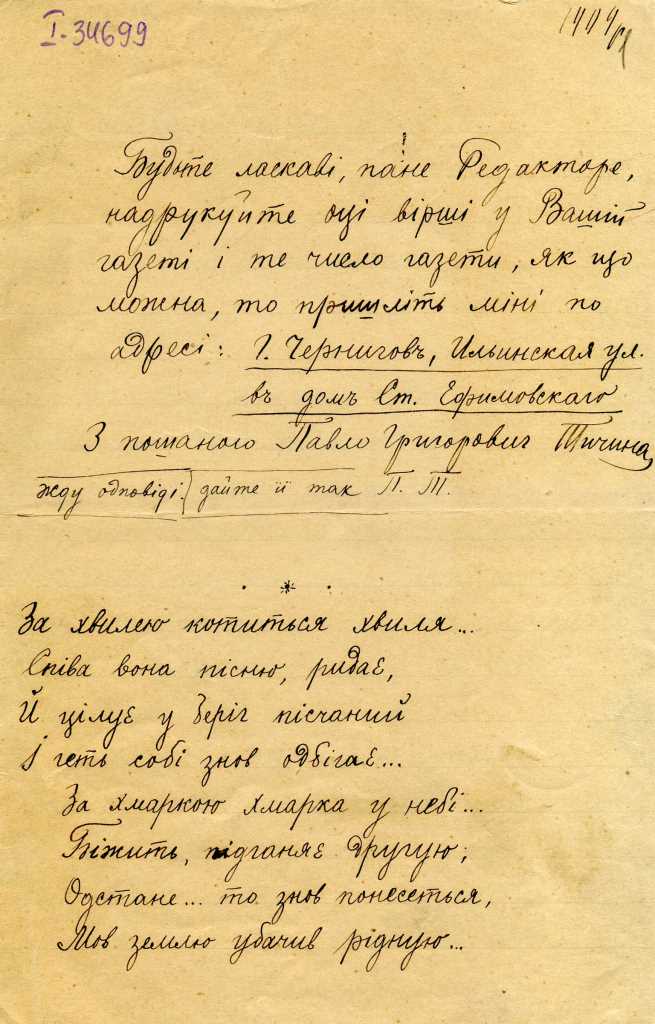 I-34699
1909 р
Будьте ласкаві, пане Редакторе,
надрукуйте оці вірші у Вашій
газеті і те число газети, як що
можна, то пришліть міні по
адресі: Г. Черниговъ, Ильинская ул.
въ домъ Ст. Ефимовскаго
З пошаного Павло Григорович Тичина
жду одповіді. дайте її так П. Т.
За хвилею котиться хвиля...
Співа вона пісню, ридає,
Й цілує у беріг пісчаний
І геть собі знов одбігає...
За хмаркою хмарка у небі...
Біжить, підганяє другую;
Одстане... то знов понесеться,
Мов землю убачив рідную...